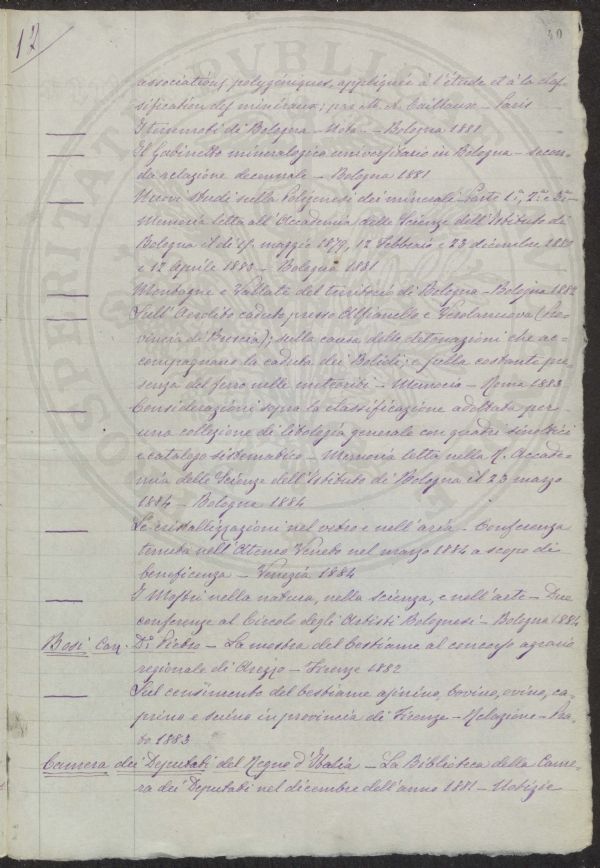 12
40
associations polygéniques, appliquée à l'étude et à la clas-
sification des minéraux; par M. A. Cailleux - Paris
I terremoti di Bologna - Nota - Bologna 1881
Il Gabinetto mineralogico universitario in Bologna - secon-
da relazione decennale - Bologna 1881
Nuovi studi sulla Poligenesi dei minerali - Parte 1ª, 2ª e 3ª -
Memoria letta all'Accademia delle Scienze dell'Istituto di
Bologna il dì maggio 1879, 12 Febbraio e 23 dicembre 1880
e 12 Aprile 1883 - Bologna 1881
Montagne e Vallate del territorio di Bologna - Bologna 1882
Sull'Aerolito caduto presso Alfianello e Verolanuova (Pro-
vincia di Brescia); sulla causa delle detonazioni che ac-
compagnano la caduta dei Bolidi; e sulla costante pre-
senza del ferro nelle meteoriti - Memoria - Roma 1883
Considerazioni sopra la classificazione adottata per
una collezione di litologia generale con quadri sinottici
e catalogo sistematico - Memoria letta nella R. Accade-
mia delle Scienze dell'Istituto di Bologna il 23 marzo
1884 - Bologna 1884
Le cristallizzazioni nel vetro e nell'aria - Conferenza
tenuta nell'Ateneo Veneto nel marzo 1884 a scopo di
beneficenza - Venezia 1884
I Mostri nella natura, nella scienza, e nell'arte - Due
conferenze al Circolo degli Artisti Bolognesi - Bologna 1884
Bosi Cav. Dr. Pietro - La mostra del bestiame al concorso agrario
regionale di Arezzo - Firenze 1882
Sul censimento del bestiame asinino, bovino, ovino, ca-
prino e suino in provincia di Firenze - Relazione - Pra-
to 1883
Camera dei Deputati del Regno d'Italia - La Biblioteca della Came-
ra dei Deputati nel dicembre dell'anno 1881 - Notizie